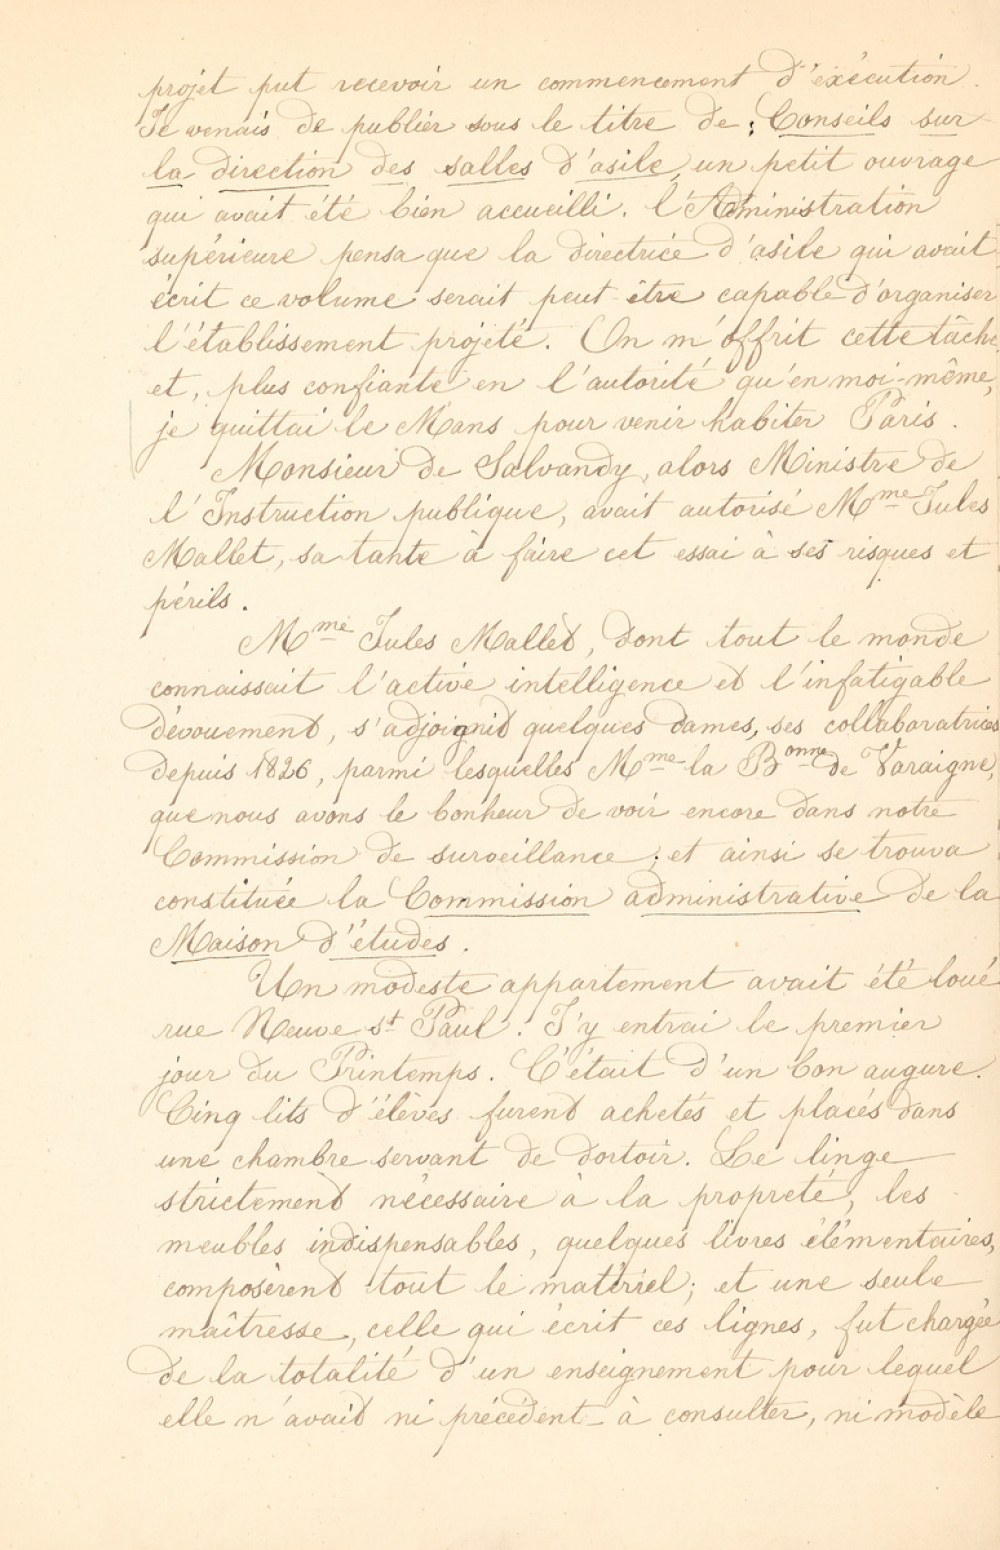 projet put recevoir un commencement d'exécution.
Je venais de publier sous le titre de : Conseils sur
la direction des salles d'asile, un petit ouvrage
qui avait été bien accueilli. l'Administration
supérieure pensa que la directrice d'asile qui avait
écrit ce volume serait peut-être capable d'organiser
l'établissement projeté. On m'offrit cette tâche
et, plus confiante en l'autorité qu'en moi-même,
je quittai le Mans pour venir habiter Paris.
Monsieur de Salvandy, alors Ministre de
l'Instruction publique, avait autorisé Mme Jules
Mallet, sa tante à faire cet essai à ses risques et
périls.
Mme Jules Mallet, dont tout le monde
connaissait l'active intelligence et l'infatigable
dévouement, s'adjoignit quelques dames, ses collaboratrices
depuis 1826, parmi lesquelles Mme la Bonne de Varaigne,
que nous avons le bonheur de voir encore dans notre
Commission de surveillance ; et ainsi se trouva
constituée la Commission administrative de la
Maison d'études.
Un modeste appartement avait été loué
rue Neuve st Paul. J'y entrai le premier
jour du Printemps. C'était d'un bon augure.
Cinq lits d'élèves furent achetés et placés dans
une chambre servant de dortoir. Le linge
strictement nécessaire à la propreté, les
meubles indispensables, quelques livres élémentaires,
composèrent tout le matériel; et une seule
maîtresse, celle qui écrit ces lignes, fut chargée
de la totalité d'un enseignement pour lequel
elle n'avait ni précédent à consulter, ni modèle